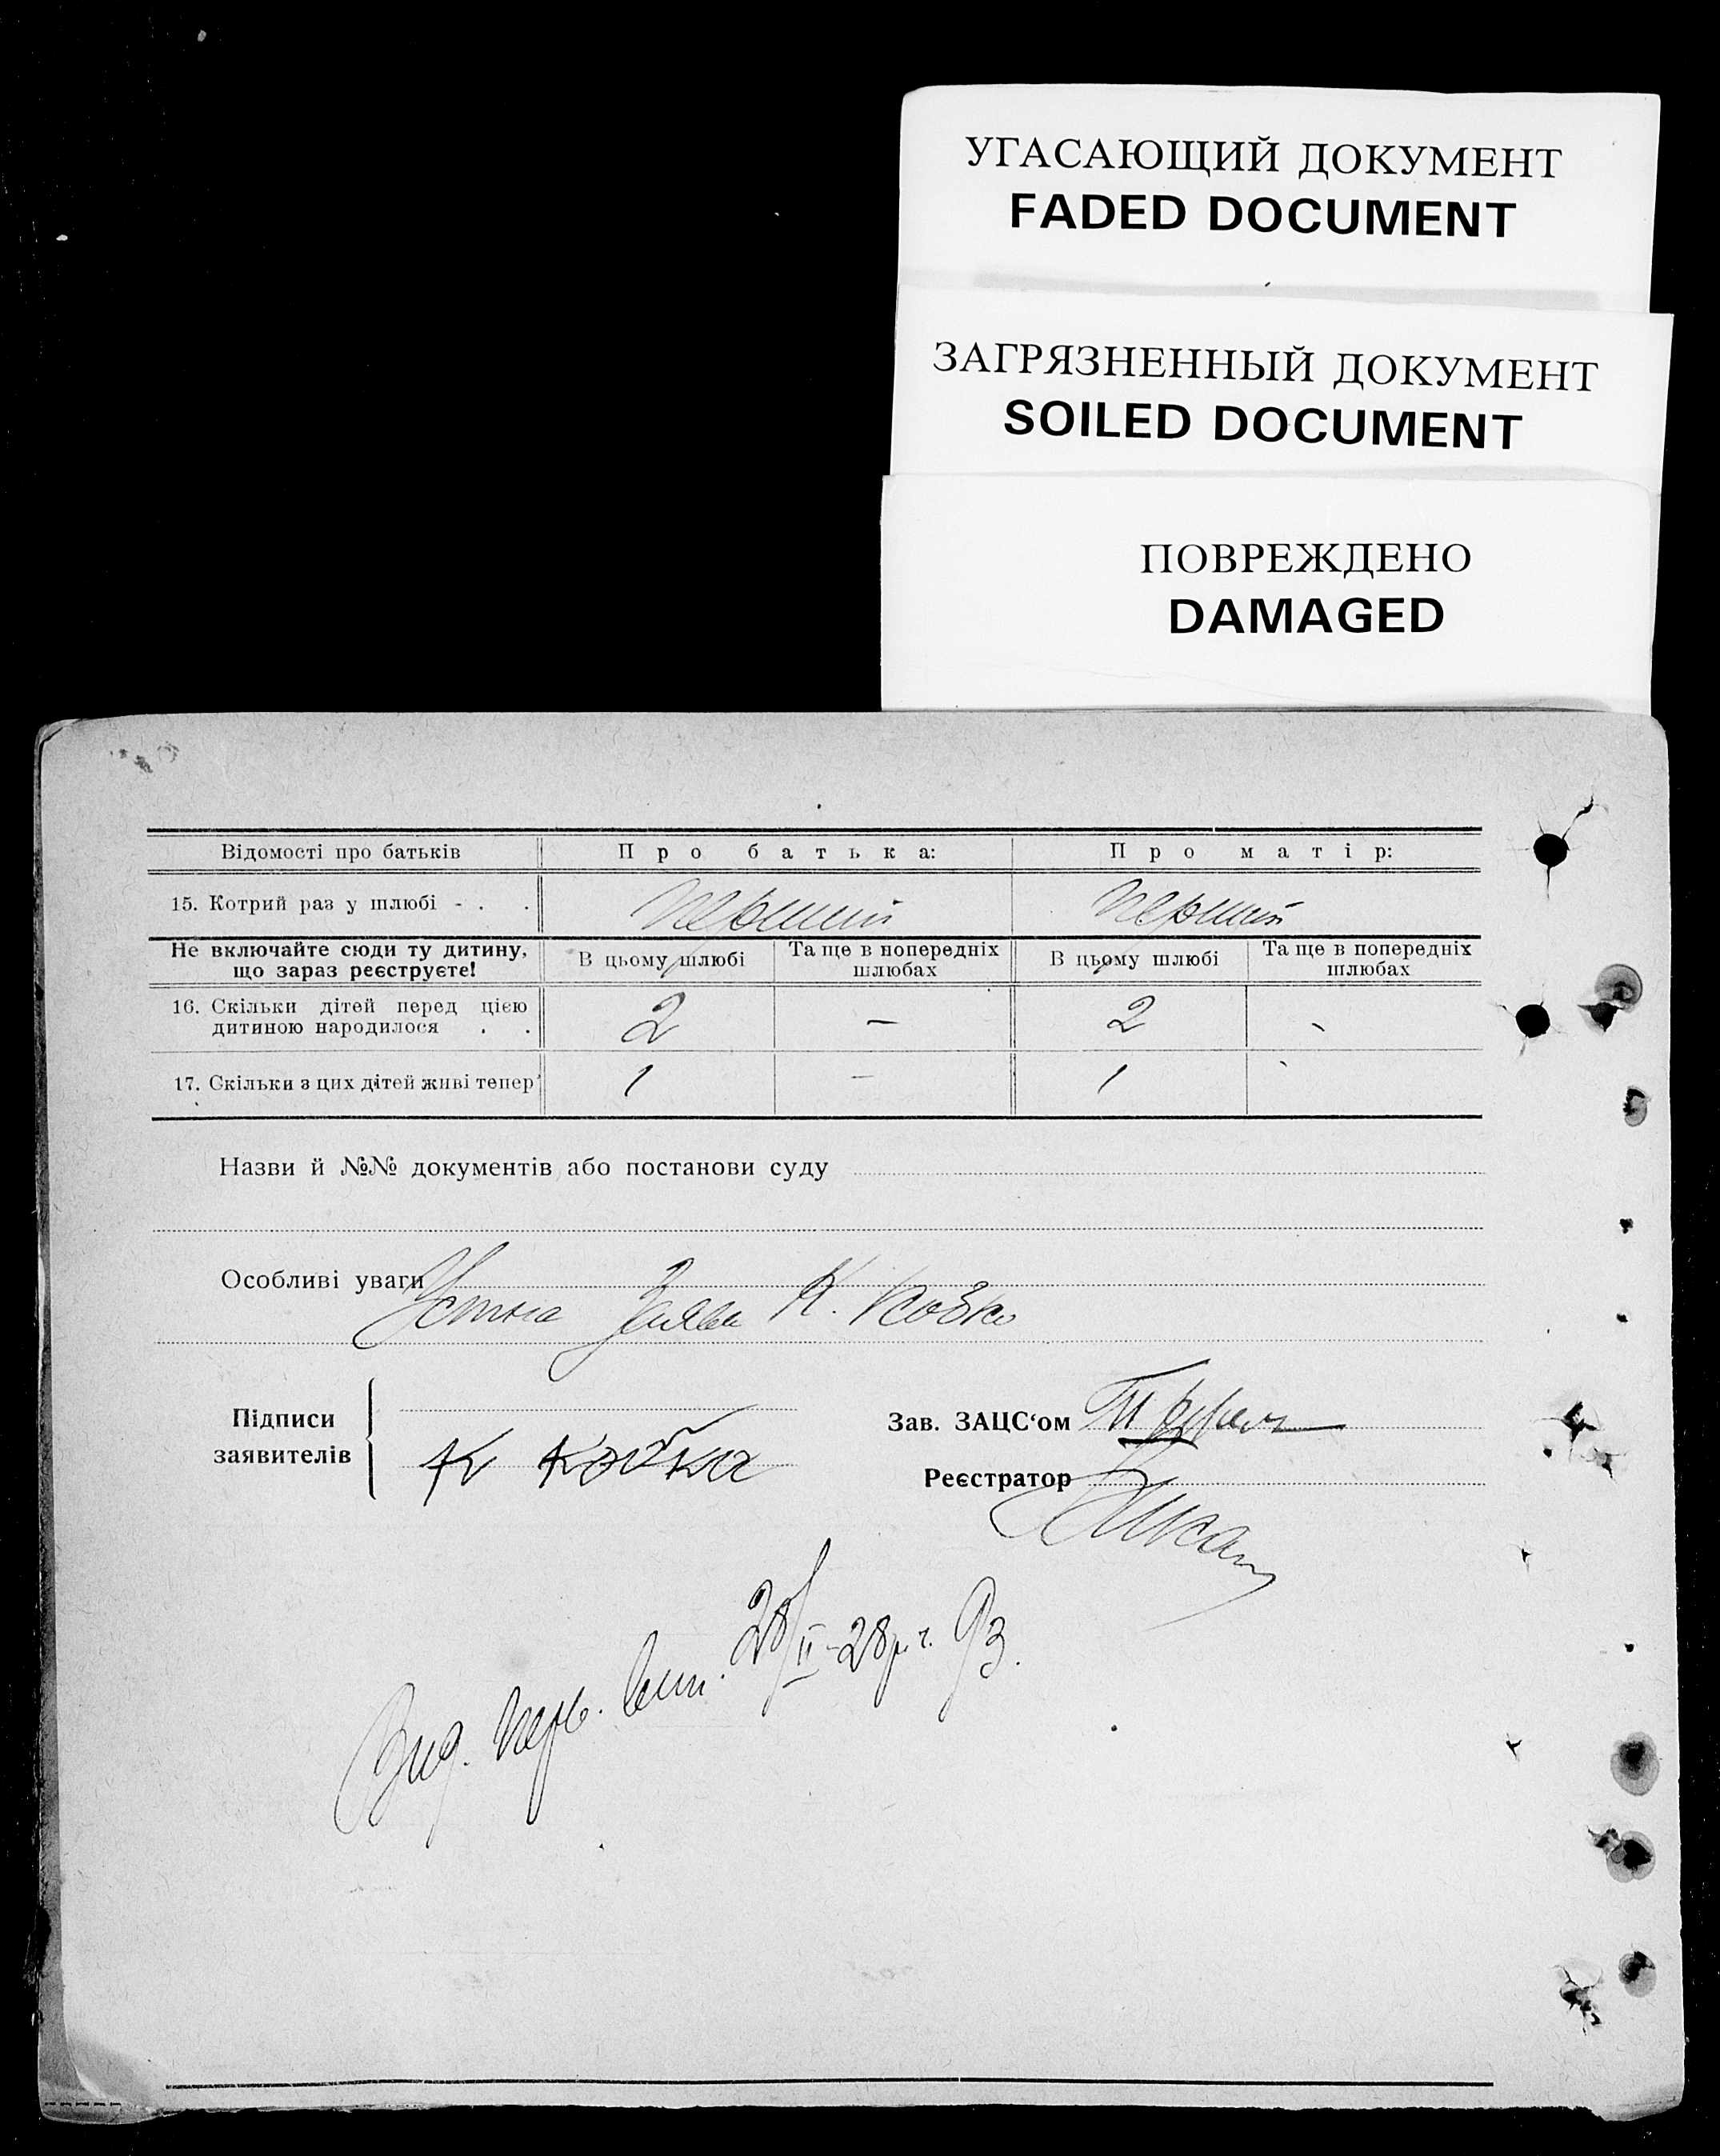 УГАСАЮЩИЙ ДОКУМЕНТ
FADED DOCUMENT
ЗАГРЯЗНЕННЫЙ ДОКУМЕНТ
SOILED DOCUMENT
ПОВРЕЖДЕНО
DAMAGED
Відомості про батьків Про батька: Про матір:
15. Котрий раз у шлюбі - . . перший перший
Не включайте сюди ту дитину, що зараз реєструєте! В цьому шлюбі Та ще в попередніх шлюбах В цьому шлюбі Та ще в попередніх шлюбах
16. Скільки дітей перед цією дитиною народилося . . 2 — 2 -
17. Скільки з цих дітей живі тепер 1 — 1
Назви й №№ документів або постанови суду
Особливі уваги
Устна К.
Підписи заявителів
К
Зав. ЗАЦС'ом
Реєстратор
28/II-28р. 93.